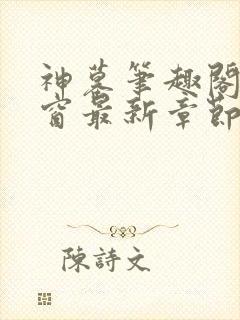 神墓筆趣閣
窗最新章節
陳詩文